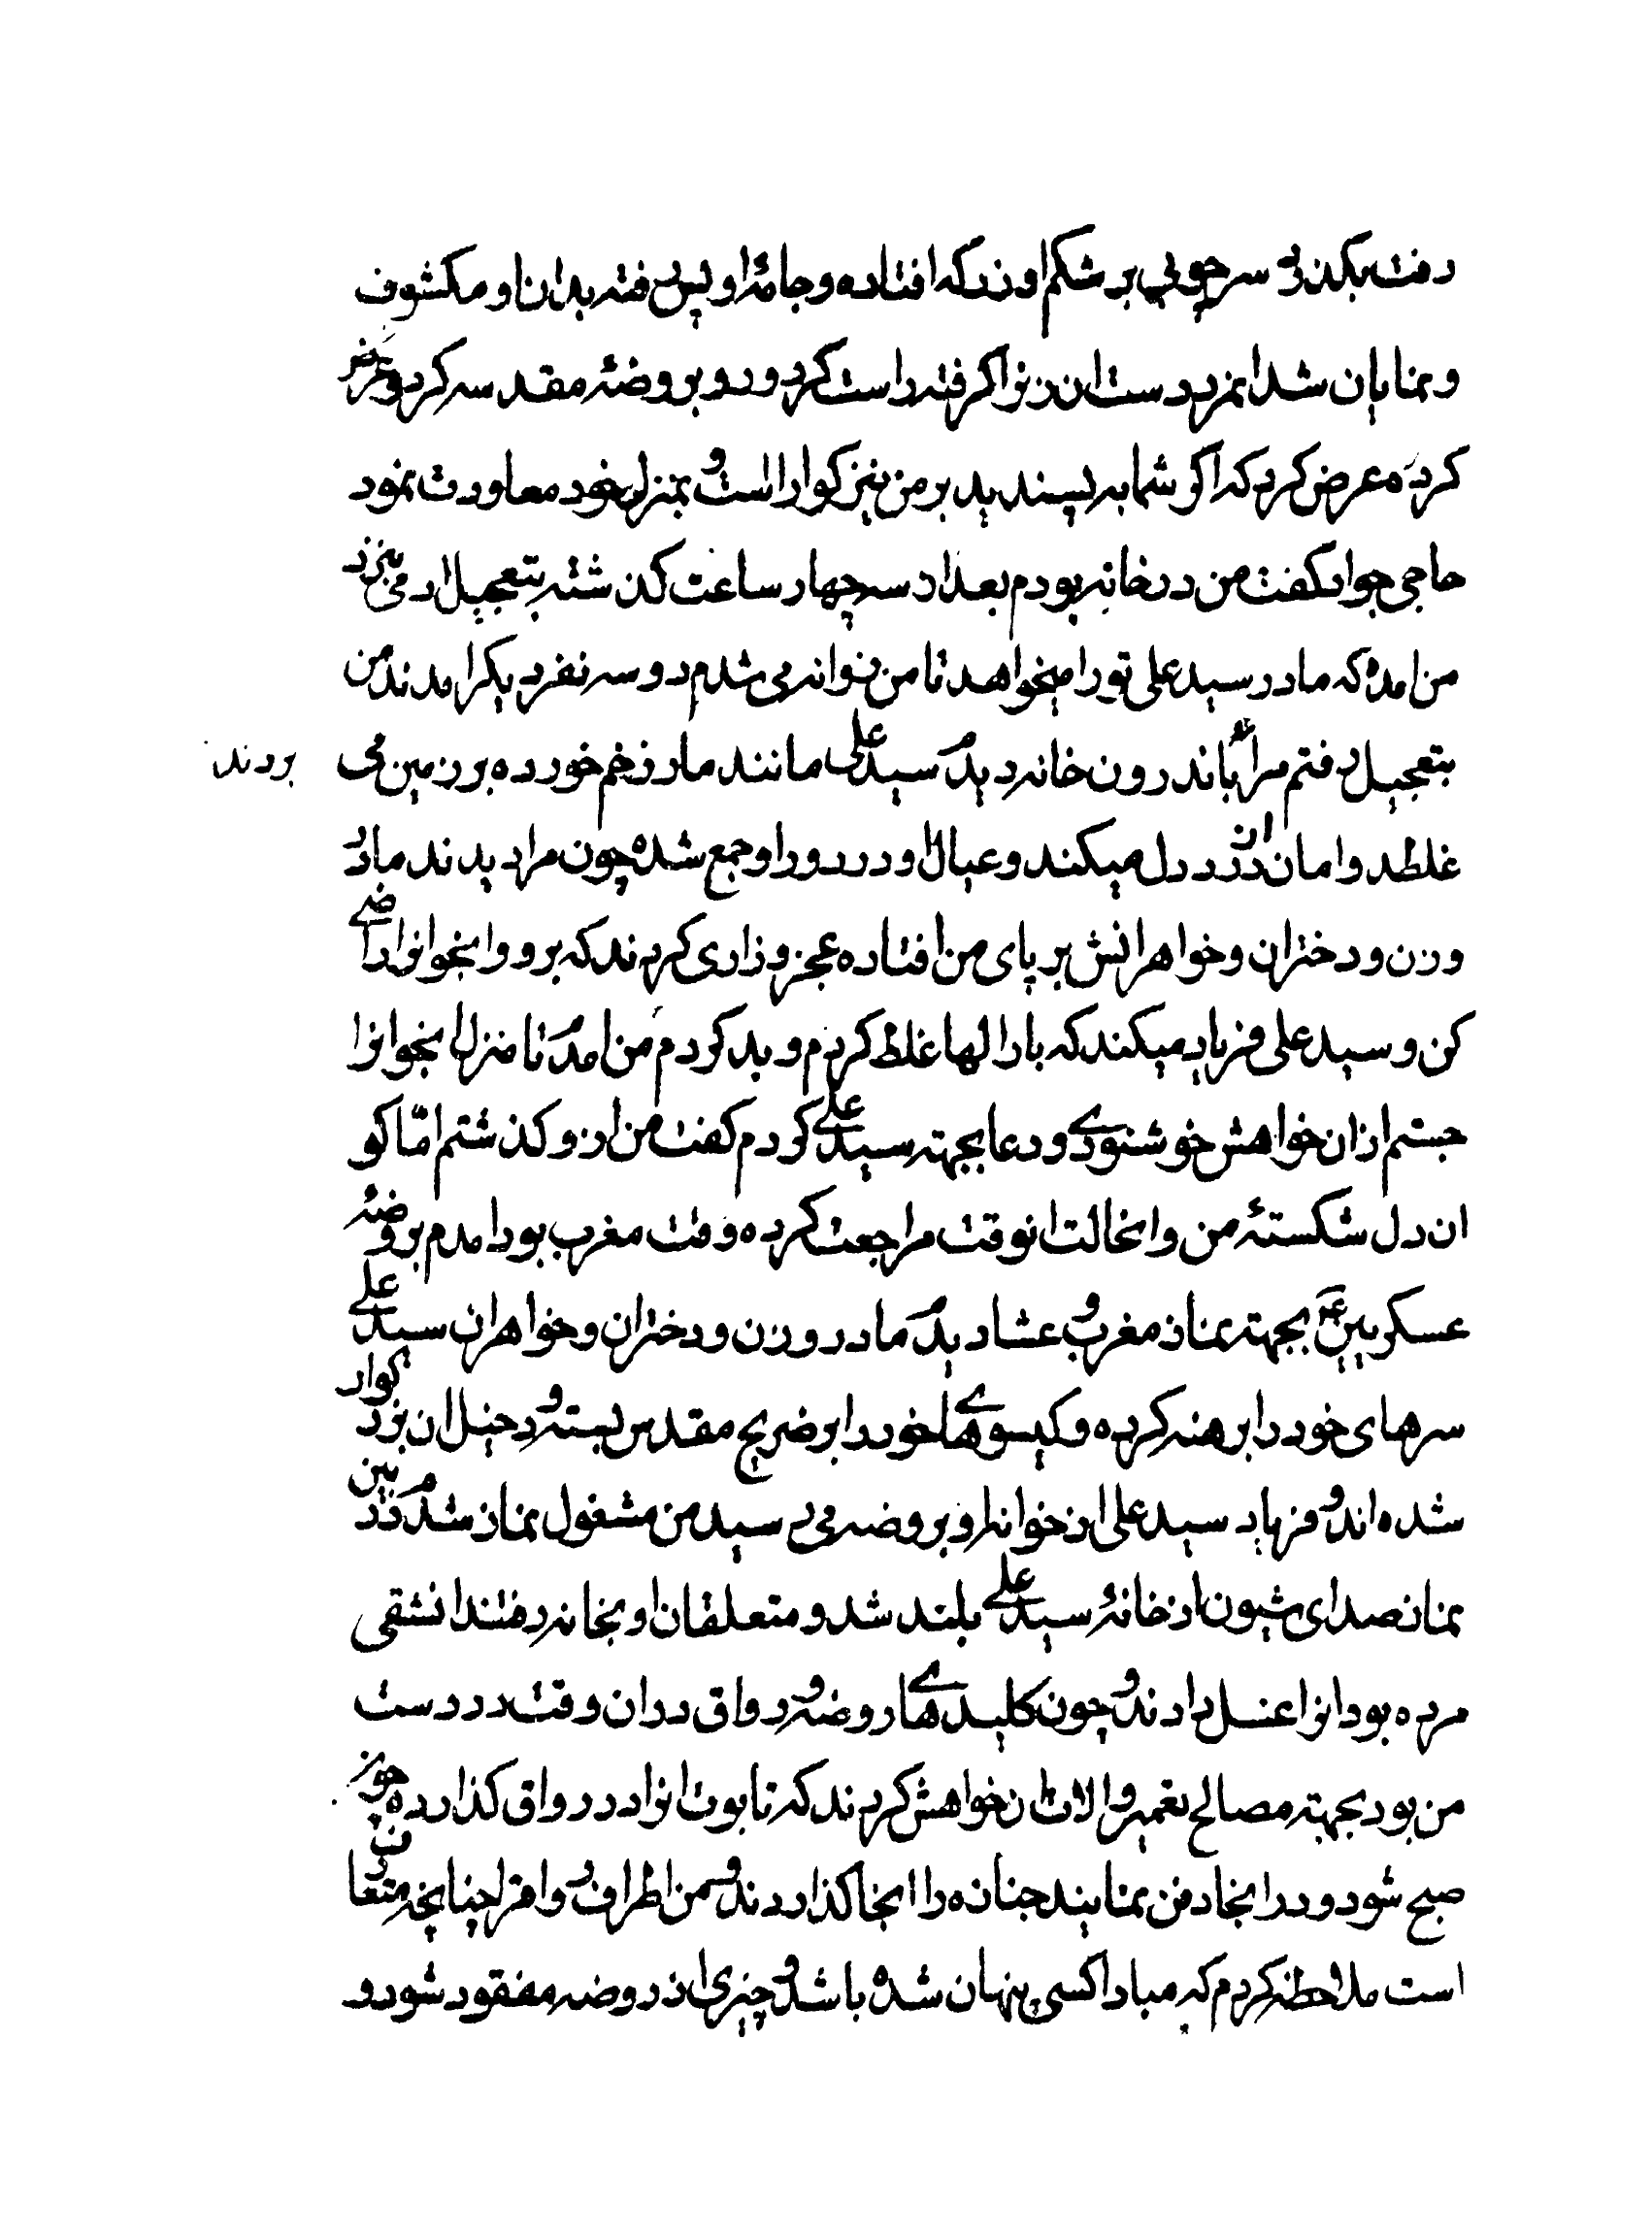 رفت بکند بی سر چوبی بر شکم او زد که افتاده و جامهٔ او پس رفته بدن او مکشوف
و نمایان شد انمرد دست ان زنرا گرفته راست کرد و رو بروضهٔ مقدسه کرد و عرض
کرده عرض کرد که اگر شما به پسندید بر من نیز گوارا است و بمنزل خود معاودت نمود
حاجی جواد گفت من در خانه بودم بعد از سه چهار ساعت گذشته بتعجیل ادمی بنزد
من امده که مادر سید علی تو را میخواهد تا من روانه می شدم دو سه نفر دیگر امدند من
بتعجیل رفتم مرا باندرون خانه بردند دیدم سید علی مانند مار زخم خورده بر زمین می
غلطد و امان از درد دل میکند و عیال او در دور او جمع شده چون مرا دیدند مادر
و زن و دختران و خواهرانش بر پای من افتاده عجز و زاری کردند که برو و انجوانرا راضی
کن و سید علی فریاد میکند که بار الها غلط کردم و بد کردم من امدم تا منزل انجوانرا
جستم از ان خواهش خوشنودی و دعا بجهته سید علی کردم گفت من از او گذشتم امّا کو
ان دل شکستهٔ من و انحالت انوقت مراجعت کرده وقت مغرب بود امدم بروضهٔ
عسکریین ع بجهته نماز مغرب و عشا دیدم مادر و زن و دختران و خواهران سید علی
سرهای خود را برهنه کرده و گیسوهای خود را بر ضریح مقدس بسته و دخیل ان بزرگوار
شده اند و فریاد سید علی از خوانه او بروضه می رسید من مشغول نماز شدم در بین
نماز صدای شیون از خانهٔ سید علی بلند شد و متعلقان او بخانه رفتند انشقی
مرده بود انرا غسل دادند و چون کلیدهای روضه و رواق در ان وقت در دست
من بود بجهته مصالح تعمیر و الات ان خواهش کردند که تابوت انرا در رواق گذارده چون
صبح شود و در انجا دفن نمایند جنازه را انجا گذاردند و من اطراف رواق را چنانچه متعارف
است ملاحظه کردم که مبادا کسی پنهان شده باشد و چیزی از روضه مفقود شود و